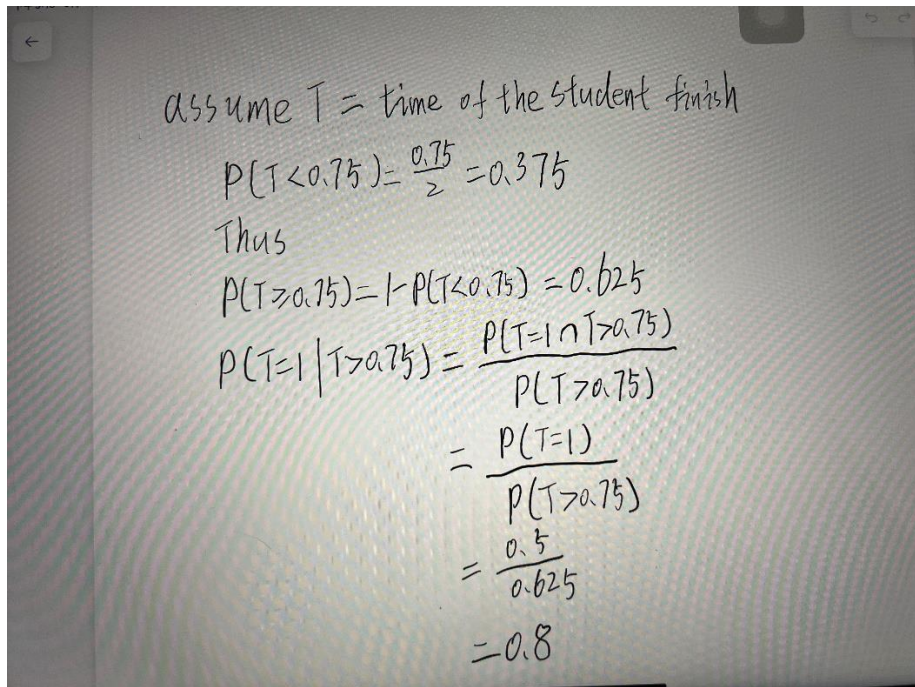 assume T = time of the student finish
P(T<0.75) = 0.75/2 = 0.375
Thus
P(T≥0.75) = 1-P(T<0.75) = 0.625
P(T=1|T>0.75) = P(T=1∩T>0.75)/P(T>0.75)
= P(T=1)/P(T>0.75)
= 0.5/0.625
= 0.8